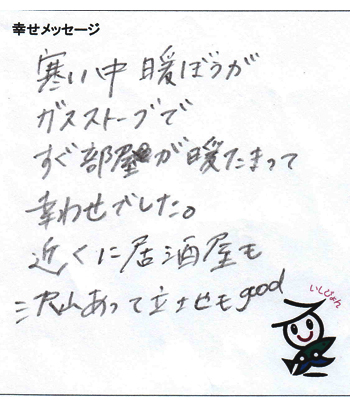 幸せメッセージ
寒い中 暖ぼうが
ガスストーブで
すぐ部屋が暖たまって
幸わせでした。
近くに居酒屋も
沢山あって立地もgood
いしぴょん